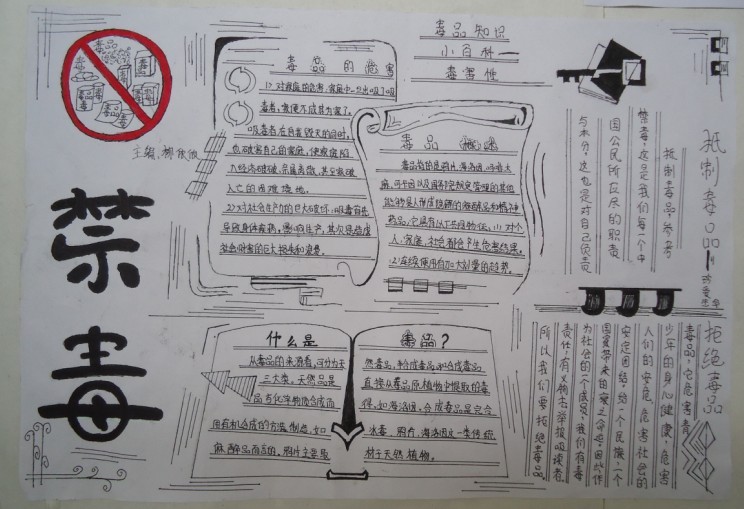 毒品知识
小百科
毒害性
主编:
禁毒
毒品的危害
1)对家庭的危害:家庭中一旦出现了吸
毒者,家便不成其为家了。
吸毒者在自我毁灭的同时,
也破害自己的家庭,使家庭陷
入经济破破、亲属离散、甚至家破
人亡的困难境地。
2)对社会生产力的巨大破坏:吸毒首先
导致身体疾病,影响生产,其次是造成
社会财富的巨大损失和浪费。
毒品概述
毒品指的是鸦片、海洛因、
麻、可卡因以及国家规定管制的其他
能够使人形成瘾癖的麻醉药品和精神
人、家庭、社会都会产生危害结果。
什么是
毒品?
从毒品的来源看,可分为天
三大类。天然品是
品与化学物质合成而
用有机合成的方法制造。如
麻醉品而言的。鸦片主要是
然毒品、半合成毒品和合成毒品
直接从毒品原植物中提取的毒
得,如海洛因。合成毒品是完全
冰毒、鸦片、海洛因这一类传统
材于天然植物。
抵制毒品
珍爱生命
抵制毒品,参与
禁毒,这是我们每一个中
国公民所应尽的职责
与本分,这也是对自己负责
拒绝毒品
毒品,它危害青
少年的身心健康,危害
人们的安危,危害社会的
安定团结,给一个民族,一个
国家带来的
为社会的一个成员,我们有
责任有义务去举报吸读者。
所以我们要拒绝毒品。